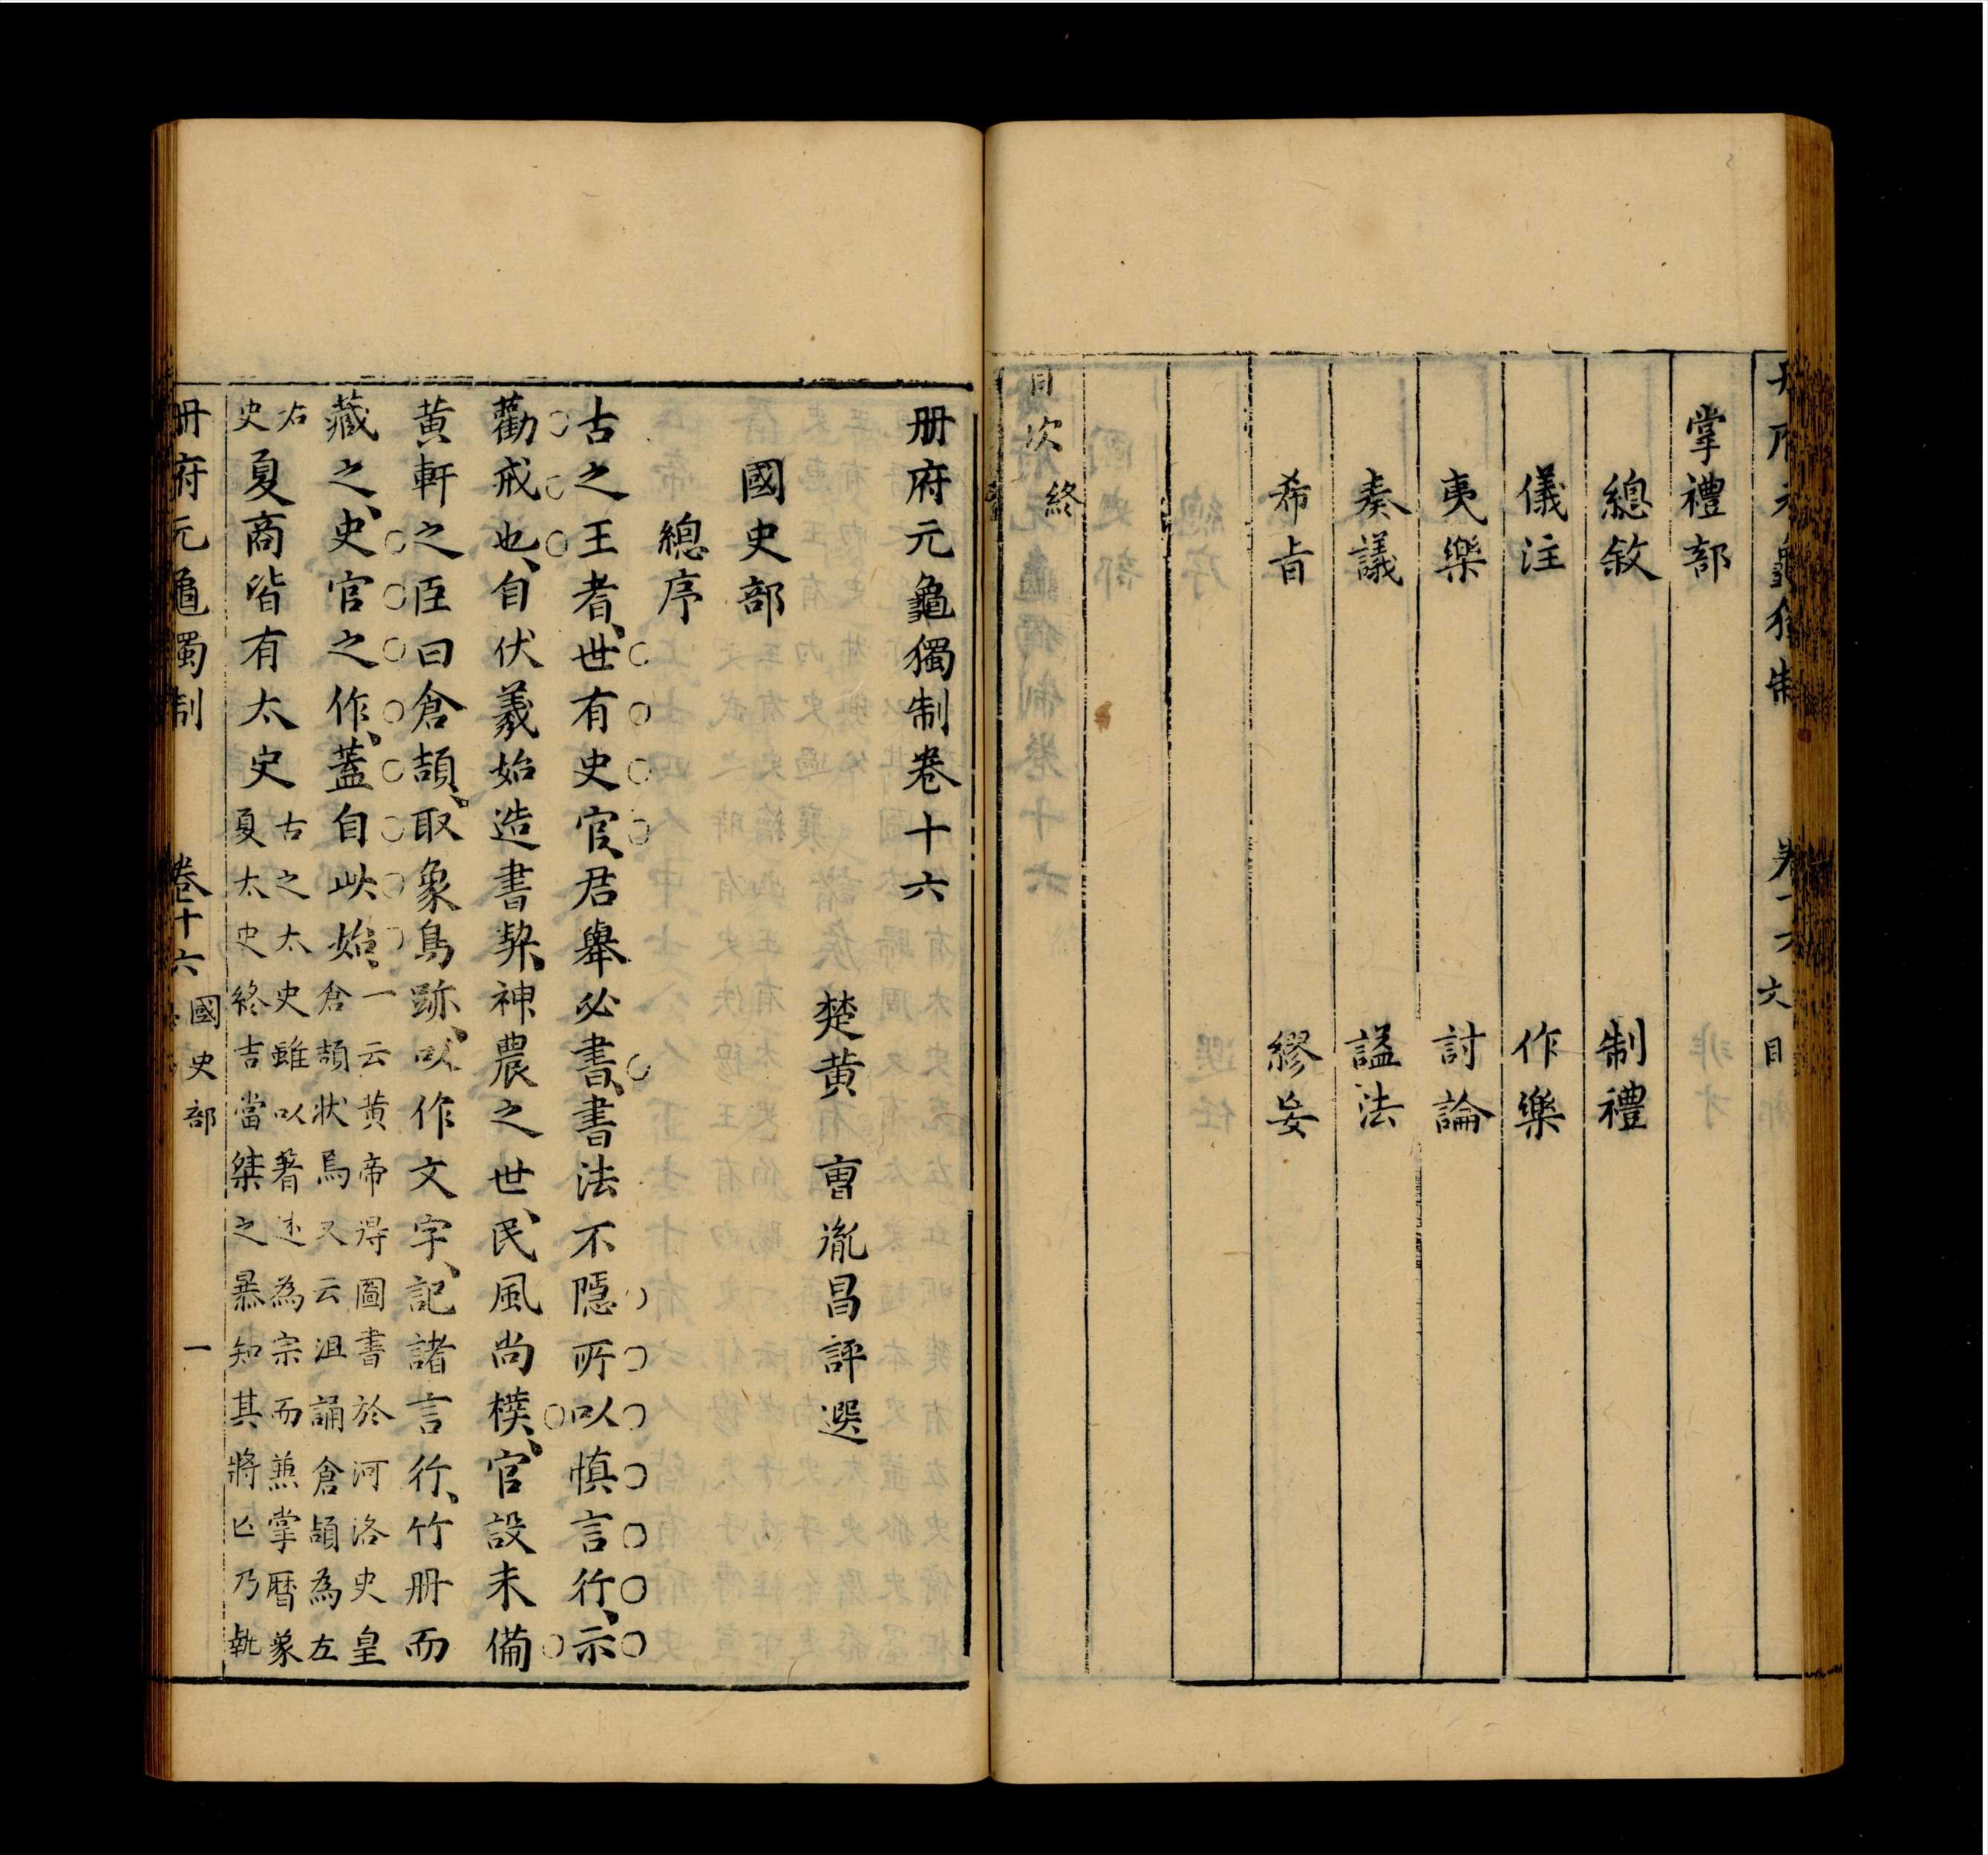 掌禮部
總敘 制禮
儀注 作樂
夷樂 討論
奏議 諡法
希旨 繆妄
目次終
册府元龜獨制卷十六
楚黄 曺胤昌評選
國史部
總序
古之王者、世有史官、君舉必書、書法不隱所以慎言行、示
勸戒也、自伏羲始造書契、神農之世、民風尚樸、官設未備
黄軒之臣曰倉頡、取象鳥跡、以作文字、記諸言行、竹册而
藏之、史官之作、蓋自此始、一云黄帝得圖書於河洛史皇
倉頡狀焉又云沮誦倉頡為左
右
史夏商皆有太史古之太史雖以著述為宗而兼掌曆象
夏太史終古當桀之暴知其將亡乃執
册府元龜獨制 卷十六 國史部 一